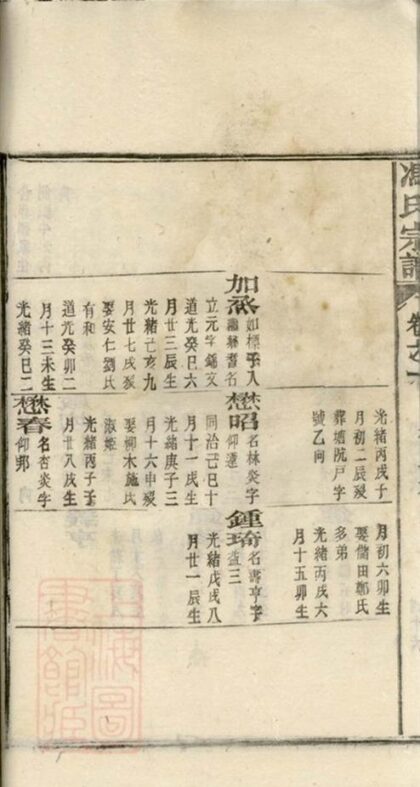 馮氏宗譜
卷之
光緒丙戌子
月初二辰歿
葬塘阬尸字
號乙向
月初六卯生
娶儲田鄭氏
多弟
光緒丙戌六
月十五卯生
加烝
如標子入
名
立元字錦文
道光癸巳六
月廿三辰生
光緒己亥九
月廿七戌歿
娶安仁劉氏
有和
道光癸卯二
月十三未生
光緒癸巳二
懋昭
名林炎字
仰遠
同治己巳十
月十一戌生
光緒庚子三
月十六申歿
娶柳木施氏
淑姬
光緒丙子子
月廿八戌生
懋春
名杏炎字
仰鄭
鍾琦
名壽亨字
益三
光緒戊戌八
月廿一辰生
上海圖書館藏